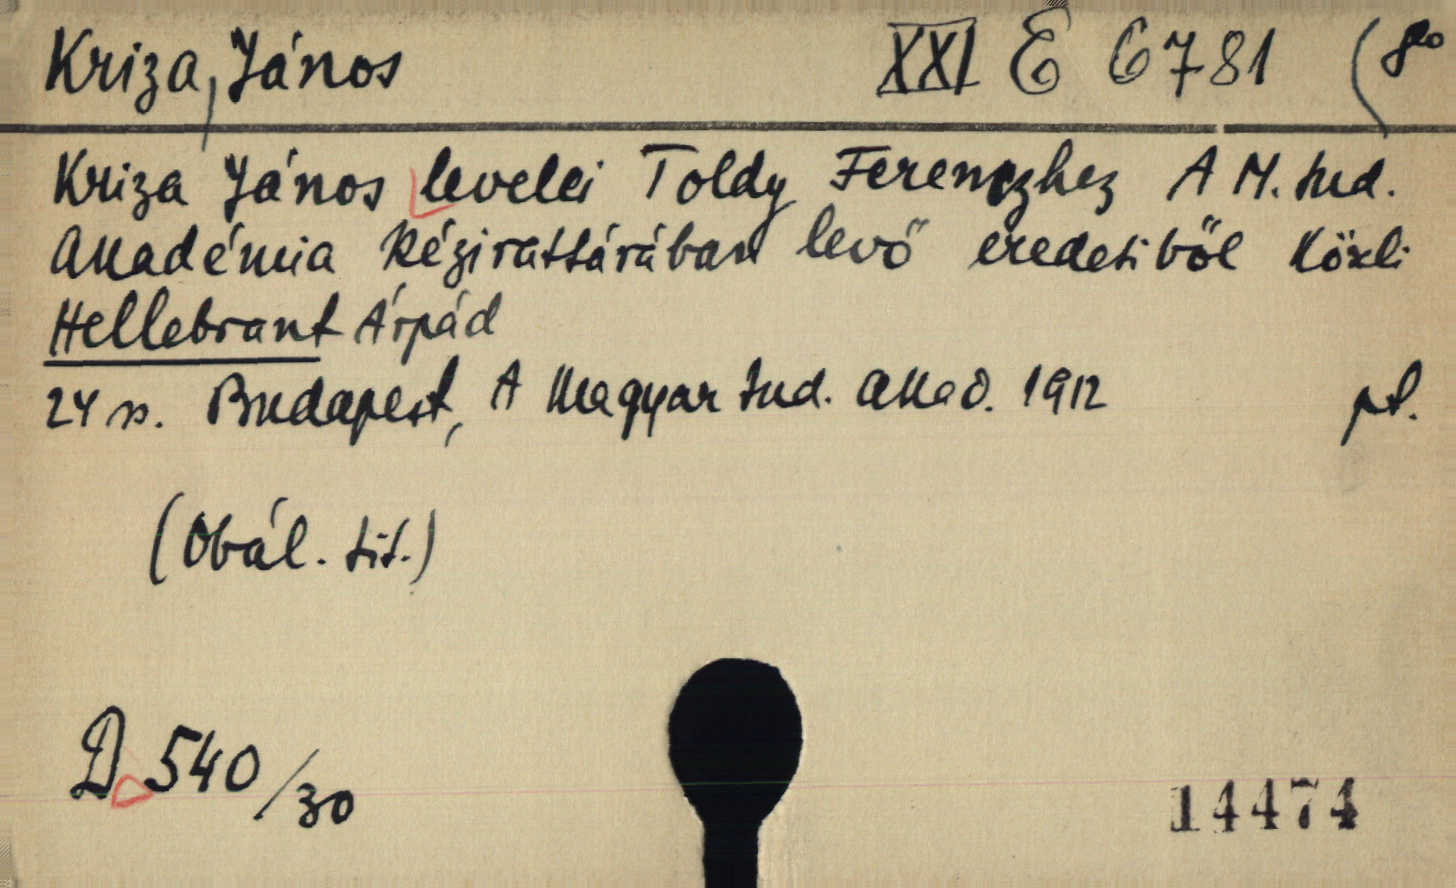 Kriza, János XXI E 6781 (8°
Kriza János levelei Toldy Ferenczhez A M. tud.
Akadémia kézirattárában levő eredetiből közli
Hellebrant Árpád
24 s. Budapest, A Magyar tud. akad. 1912 pf.
(Obál. tit.)
D 540/30
14474